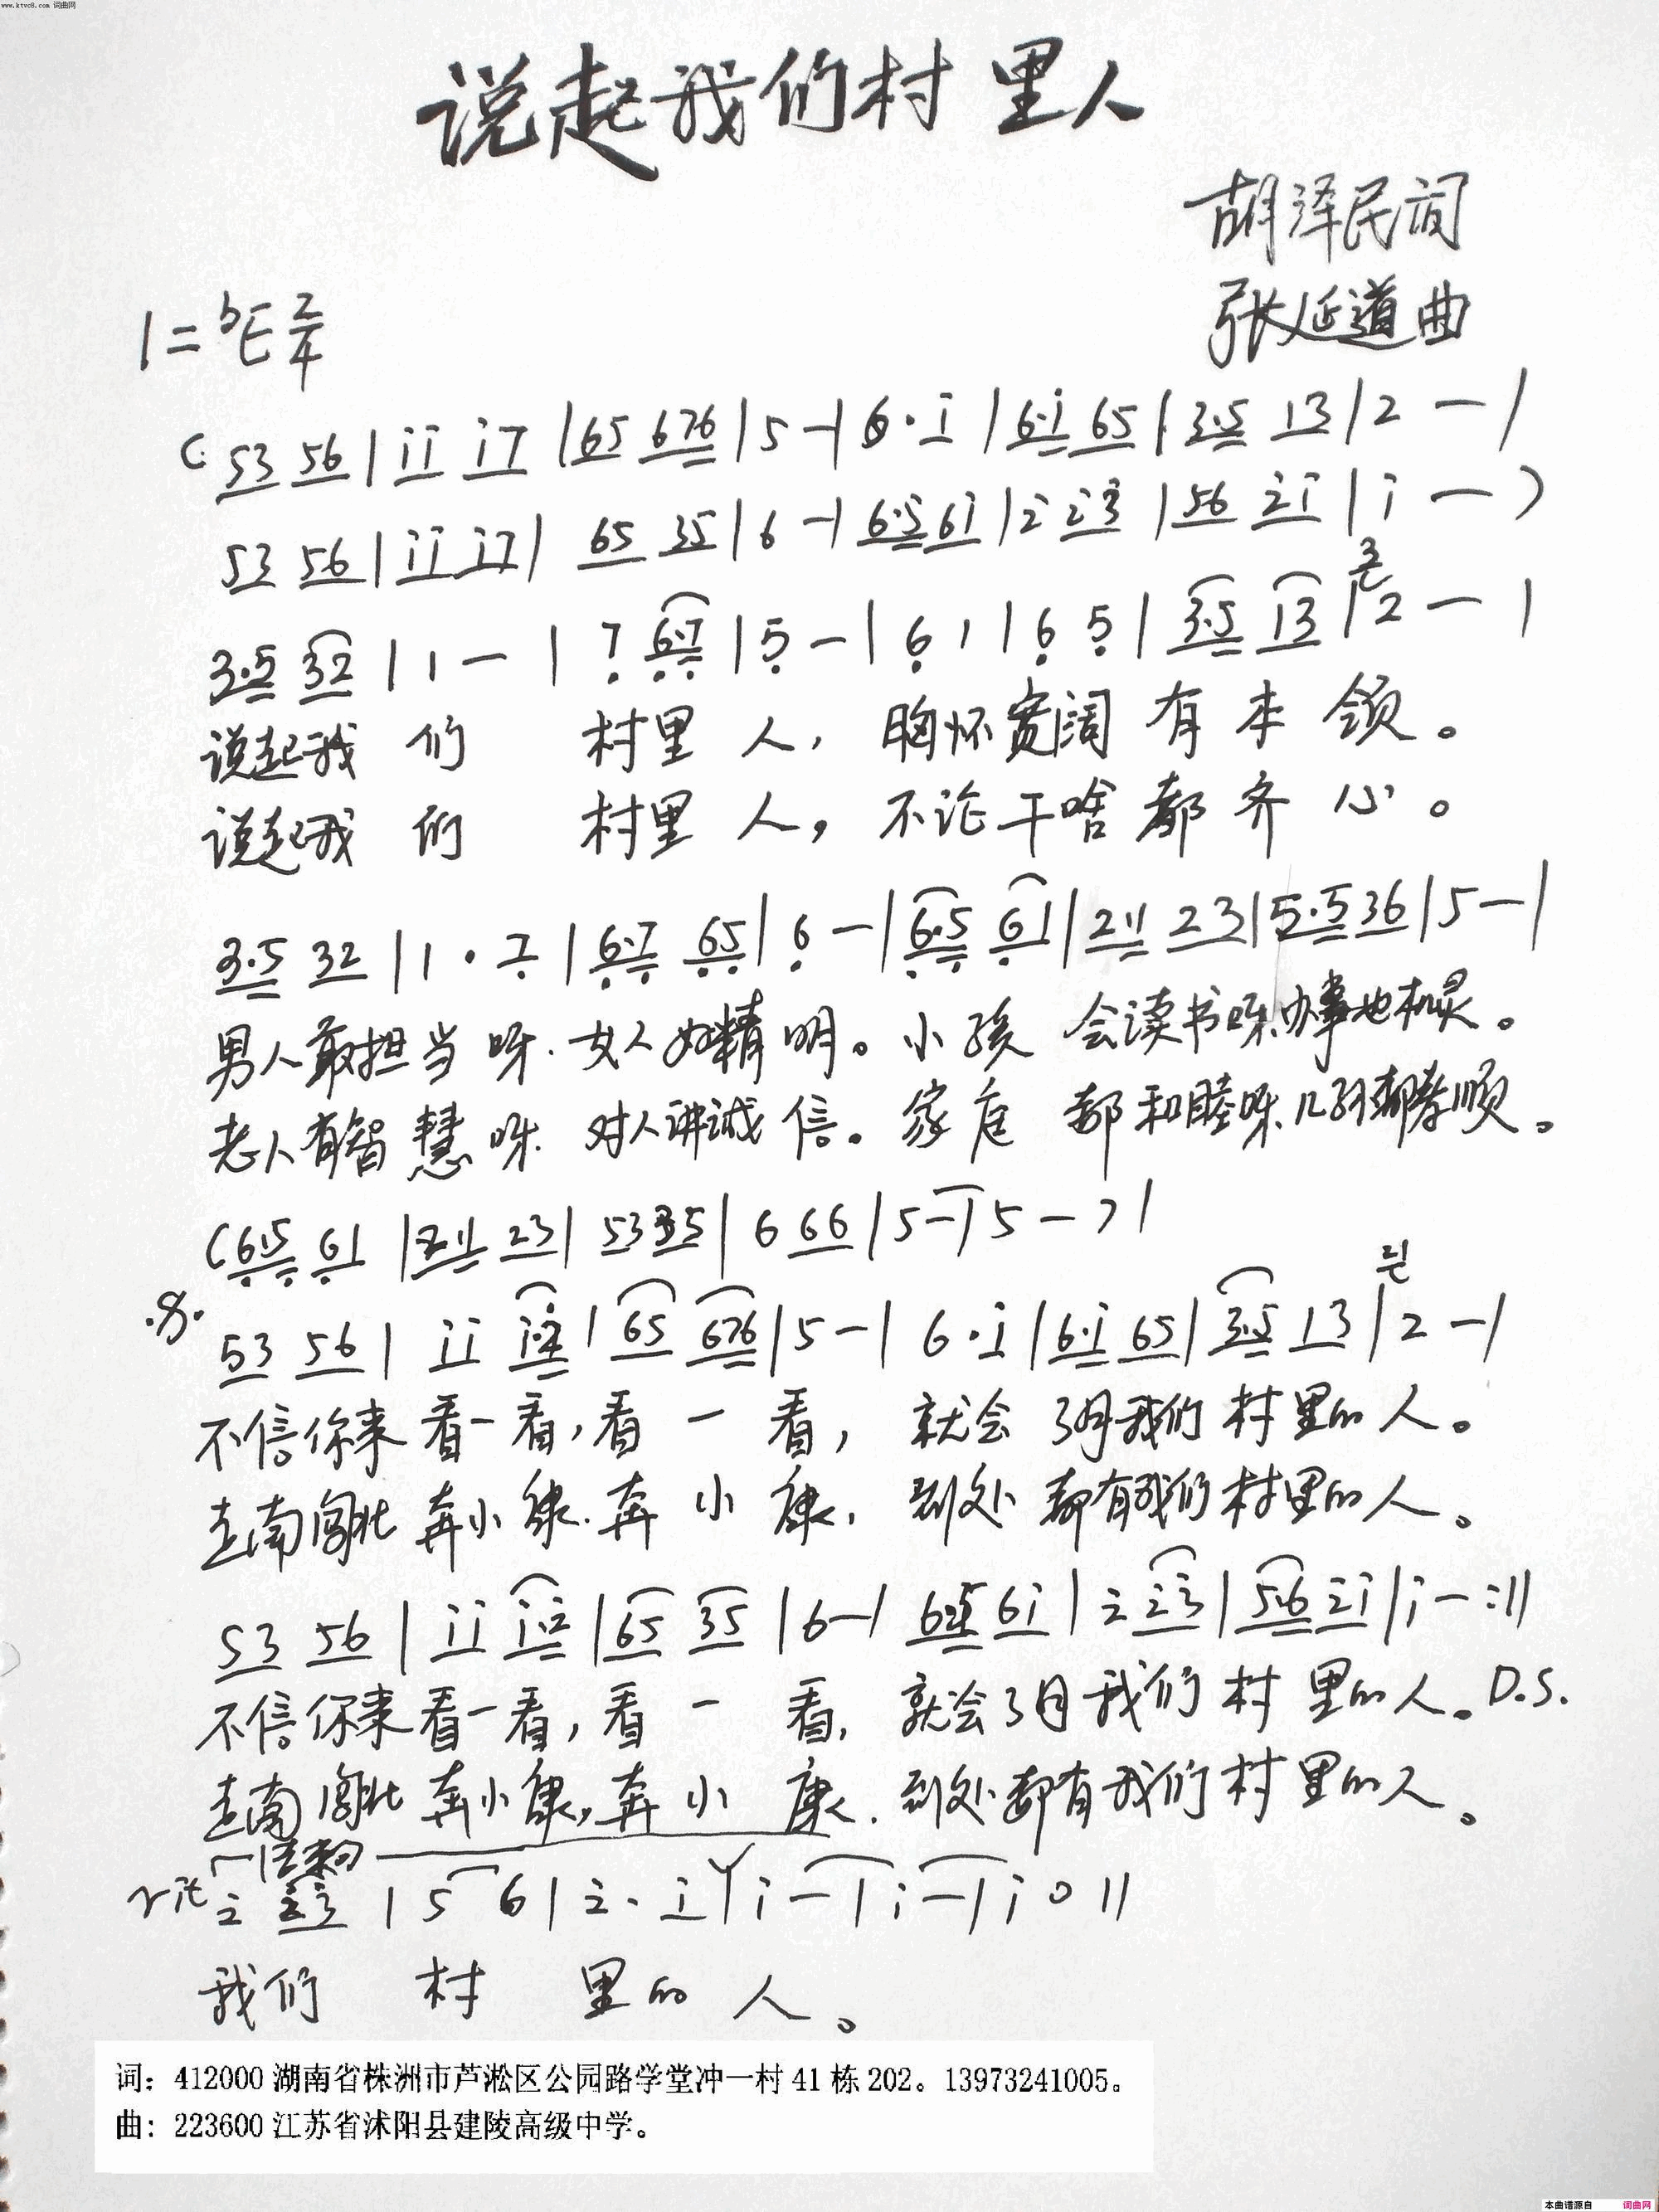 www.ktvc8.com 词曲网
说起我们村里人
胡泽民词
张延道曲
1=♭E 2/4
(53 56|i̇i̇ i̇7|65 676|5 -|6·i̇|6·i̇ 65|3·5 13|2 -|
53 56|i̇i̇ i̇7|65 35|6 -|6·5 6i̇|2̇ 2̇3̇|56 2̇i̇|i̇ -)
3·5 32|1 -|7 6·7|5 -|6 1|6 5|3·5 13|2 -|
说起我 们 村里 人, 胸怀宽阔 有 本 领。
说起我 们 村里 人, 不论干啥 都 齐 心。
3·5 32|1·7|6·7 65|6 -|6·5 61|211 23|5·5 36|5 -|
男人敢担当 呀. 女人好精 明。小 孩 会读书呀.办事也机灵。
老人有智慧 呀. 对人讲诚 信。家 庭 都和睦呀.儿孙都孝顺。
(6·5 61|211 23|53 35|6 66|5 -|5 -)|
53 56|i̇i̇ i̇·2̇|65 676|5 -|6·i̇|6·i̇ 65|3·5 13|2 -|
不信你来 看一看,看 一 看, 就会了解我们 村里的人。
走南闯北 奔小康.奔 小 康, 到处 都有我们 村里的人。
53 56|i̇i̇ i̇·2̇|65 35|6 -|6·5 6i̇|2̇ 2̇3̇|5·6 2̇i̇|i̇ -:||
不信你来看一看,看 一 看, 就会了解 我们 村 里的人。D.S.
走南闯北 奔小康,奔 小 康. 到处都有我们村里的人。
结束句
rit 2̇ 2̇3̇|5 6|2̇·i̇|i̇ -|i̇ -|i̇ 0||
我们 村 里的 人。
词：412000 湖南省株洲市芦淞区公园路学堂冲一村 41 栋 202。13973241005。
曲：223600 江苏省沭阳县建陵高级中学。
本曲谱源自 词曲网